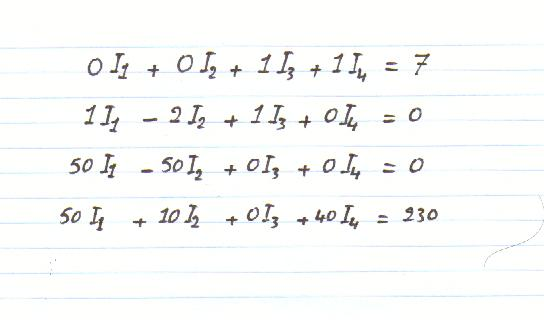 0I₁ + 0I₂ + 1I₃ + 1I₄ = 7
1I₁ - 2I₂ + 1I₃ + 0I₄ = 0
50I₁ - 50I₂ + 0I₃ + 0I₄ = 0
50I₁ + 10I₂ + 0I₃ + 40I₄ = 230